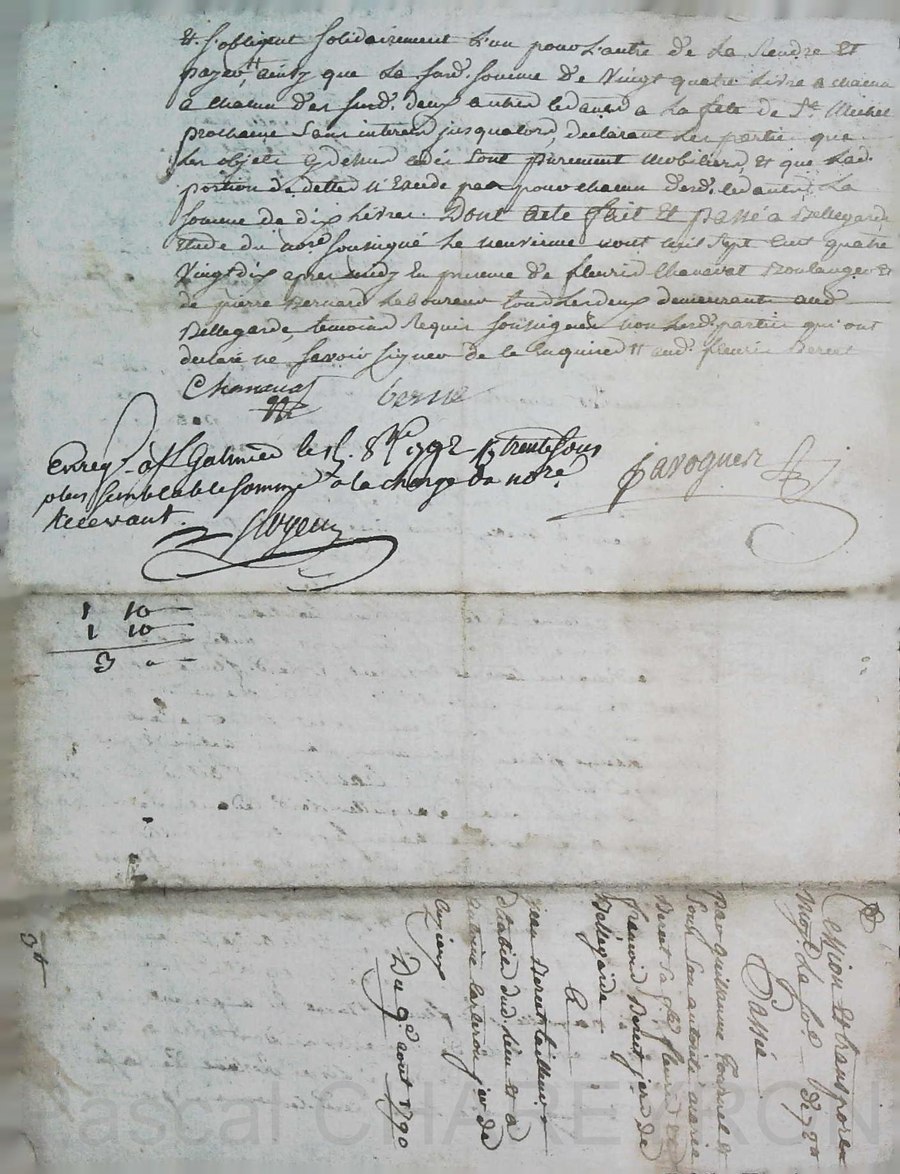 et s'obligent solidairement l'un pour l'autre de la rendre et
payer, ainsy que la susd. somme de vingt quatre livre a chacun
a chacun des susd. deux autres cedants a la fete de St. Michel
prochaine sans interest jusqualord, declarant les partie que
les objets cydessus cédés sont purement mobiliers, et que lad.
portion de dettes n'excede pas pour chacun desd. cedants la
somme de dix livres. Dont acte fait et passé a Bellegarde
étude du nore soussigné le neuvieme aout mil sept cent quatre
vingt dix apres midy en presence de fleurie Chanavat Boulanger et
de pierre Bernard Laboureur tous les deux demeurants aud.
Bellegarde, temoins requis soussignés non lesd. partie qui ont
declaré ne savoir signer de ce enquises et aud. fleurie
Chanavat
Enregt. à St Galmier le 8bre 1792 trente sous
plus semblable somme à la charge du nore
Recevant.
1 10
1 10
3 0
Cession et transport
Passé
par Guillaume et
sous son autorité marie
Beret sa fe fleurie
francois Beret jer de
Bellegarde
A
jean Beret tailleur
d'habits dud. lieu et a
antoine jer de
Cuzieux
Du 9e aout 1790
Pascal CHAREYRON